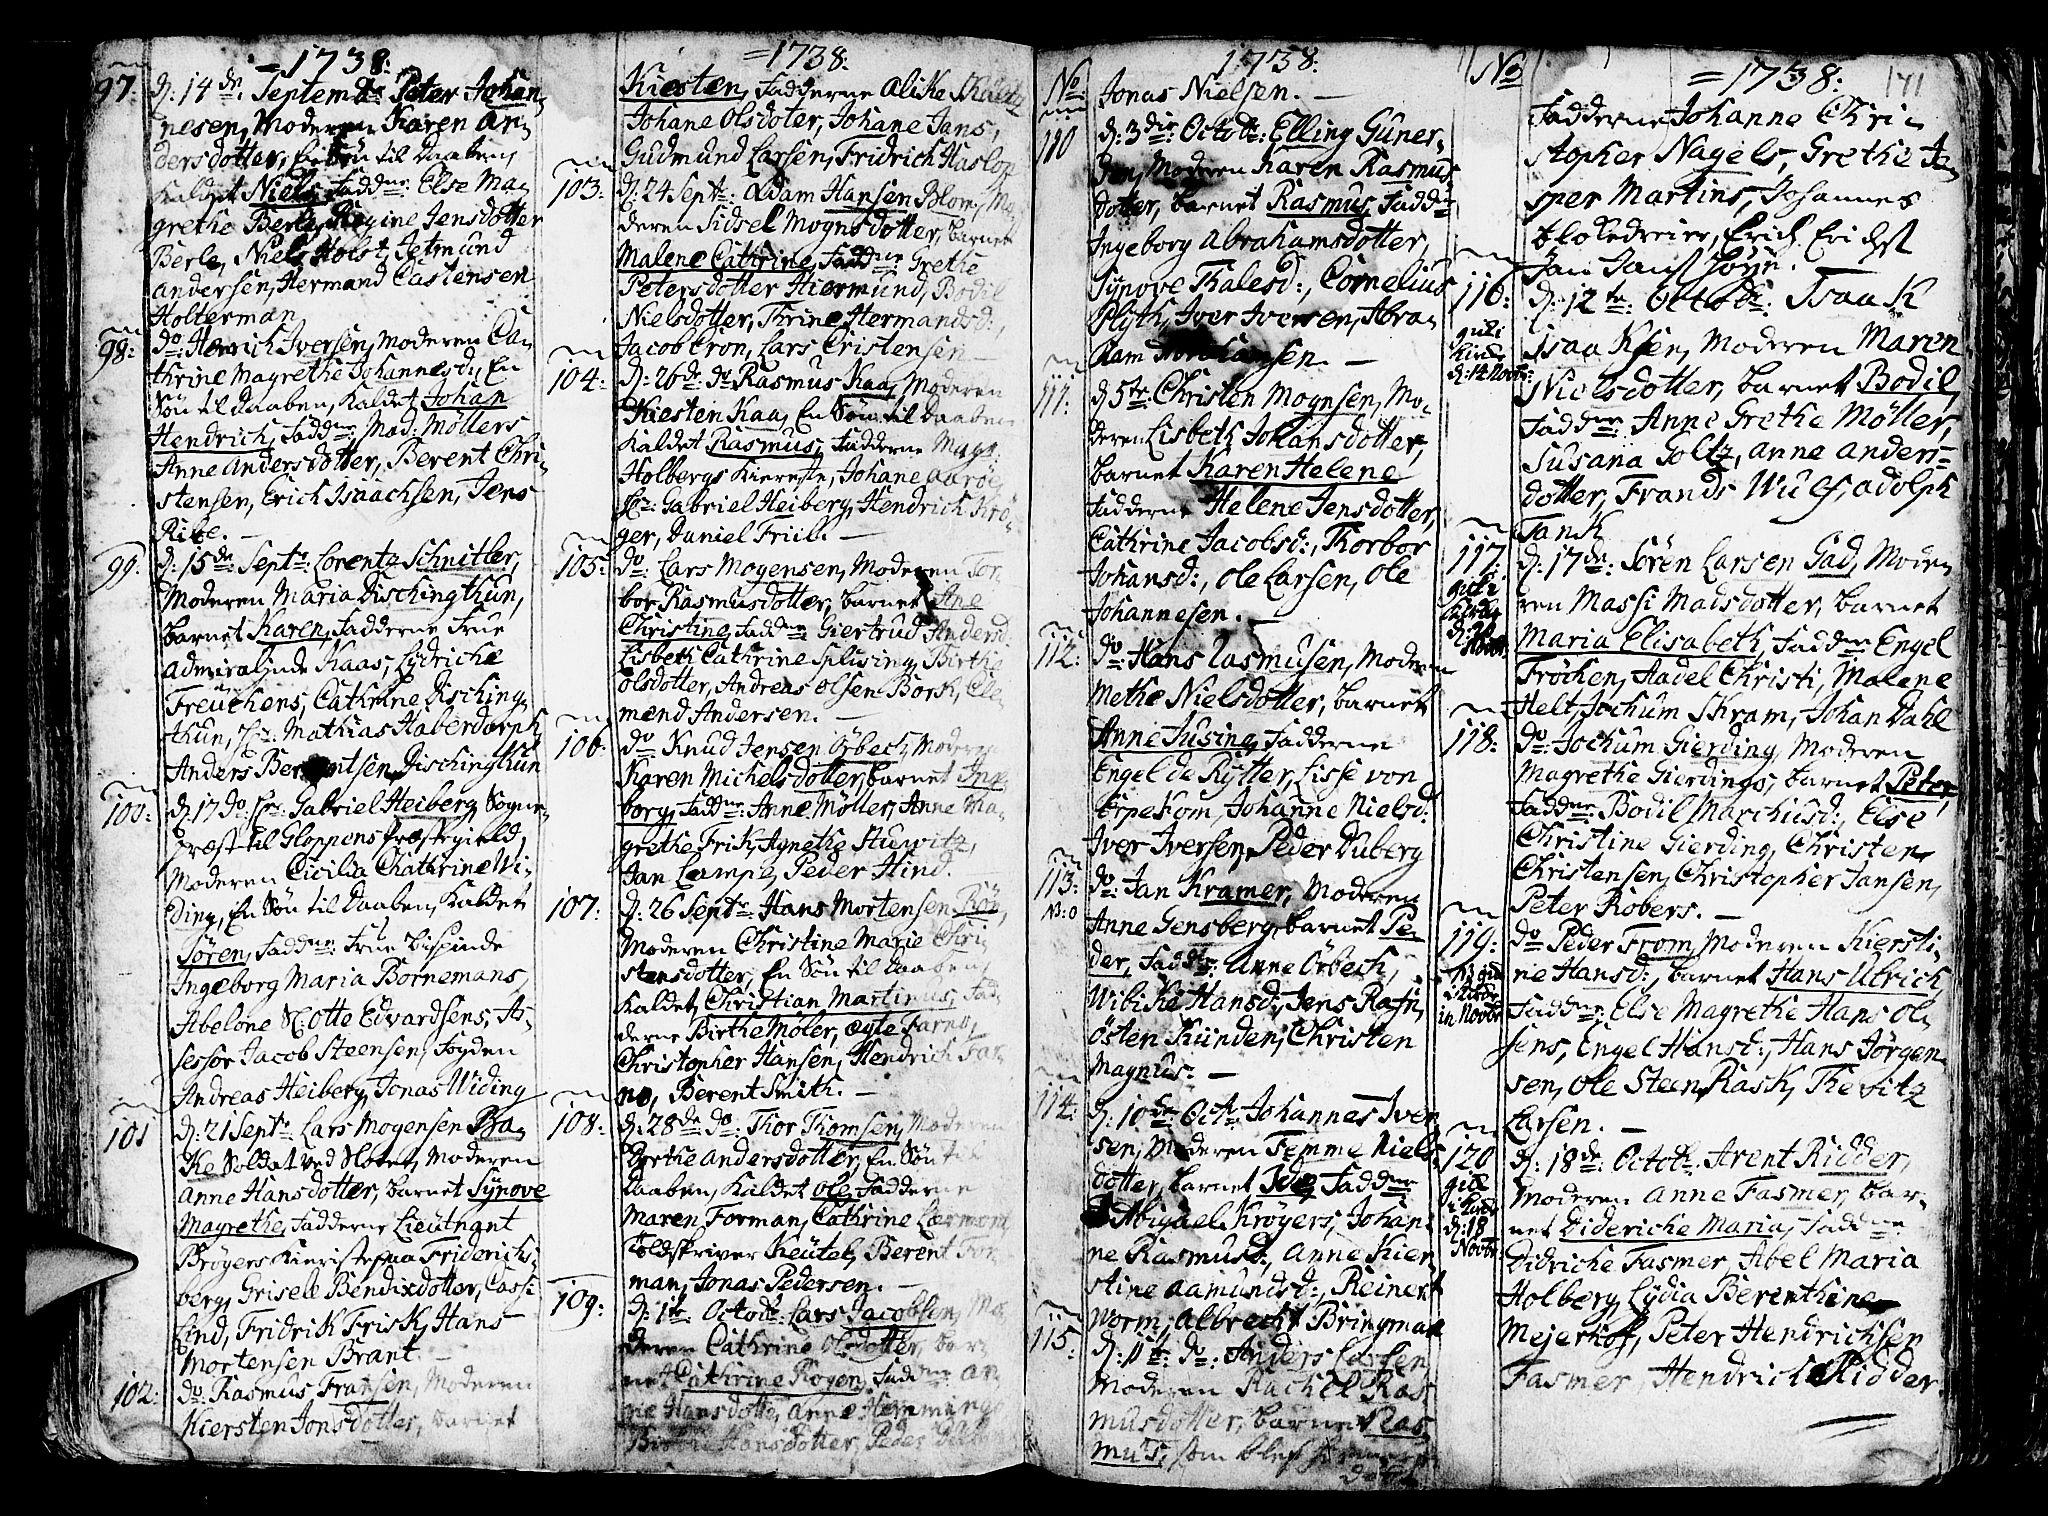 =1738:
97. d: 14 de: Septembr Peter Johan-
nesen, Moderen Karen An-
dersdotter, En Søn til Daaben,
Kaldet Niels, Faddne: Else Ma-
grethe Berle, Regine Jensdotter
Berle, Niels Holst, Jetmund
Andersen, Hermand Castensen
Holterman,
98: do: Henrich Iversen, Moderen Ca-
thrine Magrethe Johannesd:, En
Søn til Daaben, Kaldet Johan
Hendrich, Faddne: Mad: Möllers
Anne Andersdotter, Berent Chri-
stensen, Erich Isaachsen, Jens
Ribe. —
99. d: 15 de Septr: Lorentz Schnitler,
Moderen Maria Dischingthun,
Barnet Karen, Fadderne Frue
Admiralinde Kaas, Lydriche
Freuchens, Cathrine Disching-
thun, Hr: Mathias Haberdorph,
Anders Berentsen Dischingthun
100: d: 17 do Hr: Gabriel Heiberg Sogne-
præst til Gloppens præstegield,
Moderen Cicilia Chathrine Wi-
ding, En Søn til Daaben, Kaldet
Sören, Faddne: Frue Bispinde
Ingeborg Maria Bornemans,
Abelone Otte Edvardsens, As-
sessor Jacob Steensen, Fogden
Andreas Heiberg, Jonas Widing
101 d: 21 Septr: Lars Mogensen Bra-
ke Soldat ved Slottet, Moderen
Anne Hansdotter, Barnet Synove
Magrethe, Fadderne Lieutnant
Bröyers Kieriste paa Friderichs-
berg, Grisell Bendixdotter, Cassi
Lind, Fridrik Frisk, Hans
Mortensen Brant —
102: do: Rasmus Fransen, Moderen
Kiersten Jonsdotter, barnet
=1738:
Kiesten, Fadderne Alike
Johane Olsdoter, Johane Jans,
Gudmund Larsen, Fridrich Haslop
103: d: 24 Septr: Adam Hansen Blom, Mo-
deren Sidsel Mognsdotter, barnet
Malene Cathrine, Faddne Grethe
Petersdotter Hiermund, Bodil
Nielsdotter, Thrine Hermandsd:,
Jacob Cron, Lars Cristensen —
104: d: 26 de do Rasmus Kaa, Moderen
Kiesten Kaa, En Søn til Daaben
Kaldet Rasmus, Fadderne Magr:
Holbergs Kiereste, Johane Aarøe,
Hr: Gabriel Heiberg, Hendrich Krö-
ger, Daniel Friik. —
105: do: Lars Mogensen, Moderen Tor-
bor Rasmusdotter, barnet Ane
Christine, Faddne Giertrud Andersd
Lisbeth Cathrine Splusing, Birthe
Olsdotter, Andreas Olsen Bork, Cle-
mend Andersen. —
106: do Knud Jensen Örbech, Moderen
Karen Michelsdotter, barnet Inge-
borg, Faddne: Anne Möller, Anne Ma-
grethe Frik, Agnethe Sturvitz,
Jan Lampe, Peder Hind. —
107: d: 26 Septr: Hans Mortensen Rön,
Moderen Christine Marie Chri-
stensdotter, En Søn til Daaben,
Kaldet Christian Martinus, Fad-
derne Birthe Möler, Ægte Farno,
Christopher Hansen, Hendrich Far-
no, Berent Smith. —
108: d: 28 de do: Thor Thomsen, Moderen
Dorthe Andersdotter, En Søn til
Daaben, Kaldet Ole, Fadderne
Maren Forman, Cathrine Læmont
Toldskriver Keutel, Berent For-
man, Jonas Pedersen. —
109: d: 1te Octobr: Lars Jacobsen, Mo-
deren Cathrine Olsdotter, bar-
net Cathrine Rogen, Faddne An-
ne Hansdotte, Anne Hemmings
Birthe Hansdotter, Peder
1738:
No: Jonas Nielsen. —
110 d: 3die Octobr: Elling Guner-
sen, Moderen Karen Rasmus
dotter, barnet Rasmus, Faddne
Ingeborg Abrahamsdotter,
Synove Thalesd:, Cornelius
Plyth, Iver Iversen, Abra-
ham Abrahamsen. —
111: d 5te: Christen Mognsen, Mo-
deren Lisbeth Johansdotter,
barnet Karen Helene
Fadderne Helene Jensdotter,
Cathrine Jacobsd:, Thorbor
Johansd:, Ole Larsen, Ole
Johannesen. —
112: do Hans Rasmusen, Moderen
Methe Nielsdotter, barnet
Anne Susine, Fadderne
Engel de Rytter, Lisse von
Erpekom, Johanne Nielsd:
Iver Iversen, Peder Duberg
113: do: Jan Kramer, Moderen
N:0 Anne Gensberg, barnet Pe-
der, Faddne: Anne Örbech,
Wibike Hansd:, Jens Rafn,
Osten Kunden, Christen
Magnus: —
114: d: 10de Octr: Johannes Iver-
sen, Moderen Femme Niels
dotter, barnet Ide, Faddne
Abigael Kröyers, Johan-
ne Rasmusd:, Anne Kier-
stine Aamundsd:, Reinert
Worm, Albrecht Bringman
115: d: 11te: do: Anders Larsen
Moderen Rachel Ras-
musdotter, barnet Ras-
mus, som blef
No =1738: 171
Fadderne Johanne Chri-
stopher Nagels, Grethe Ja-
sper Martins, Johannes
blokedreier, Erich Erichst
Jan Janst Høyn.
116: d: 12te: Octobr: Isaak
gul i
kirke
d: 14 Novbr:
Isaaksen, Moderen Maren
Nielsdotter, barnet Bodil,
Faddne: Anne Grethe Möller,
Susana Goltz, Anne Anders-
dotter, Frands Wulf, Adolph
Tank
117: d: 17de: Sören Larsen Gad, Mode-
gul i
kirke
d: 20
Novbr:
ren Massi Madsdotter, barnet
Maria Elisabeth, Faddne Engel
Fröchen, Aadel Christi, Malene
Helt, Jochum Skram, Johan Dahl
118: do: Jochum Gierding, Moderen
Magrethe Gierdings, barnet Peter,
Faddne: Bodil Marchusd:, Else
Christine Gierding, Christen
Christensen, Christopher Jansen,
Peter Robers. —
119: do Peder From, Moderen Kiersti-
in Novbr
ne Hansd:, barnet Hans Ulrich
Faddne: Else Magrethe Hans Ol-
sens, Engel Hansd:, Hans Jörgen-
sen, Ole Steen Rask, Thevitz
Larsen. —
120 d: 18de: Octobr: Arent Ridder,
gul
i kirke
d: 18
Novbr:
Moderen Anne Fasmer, bar-
net Dideriche Maria, Faddne
Didriche Fasmer, Abel Maria
Holberg, Lydia Berenthine
Mejerhof, Peter Hendrichsen
Fasmer, Hendrich Ridder.